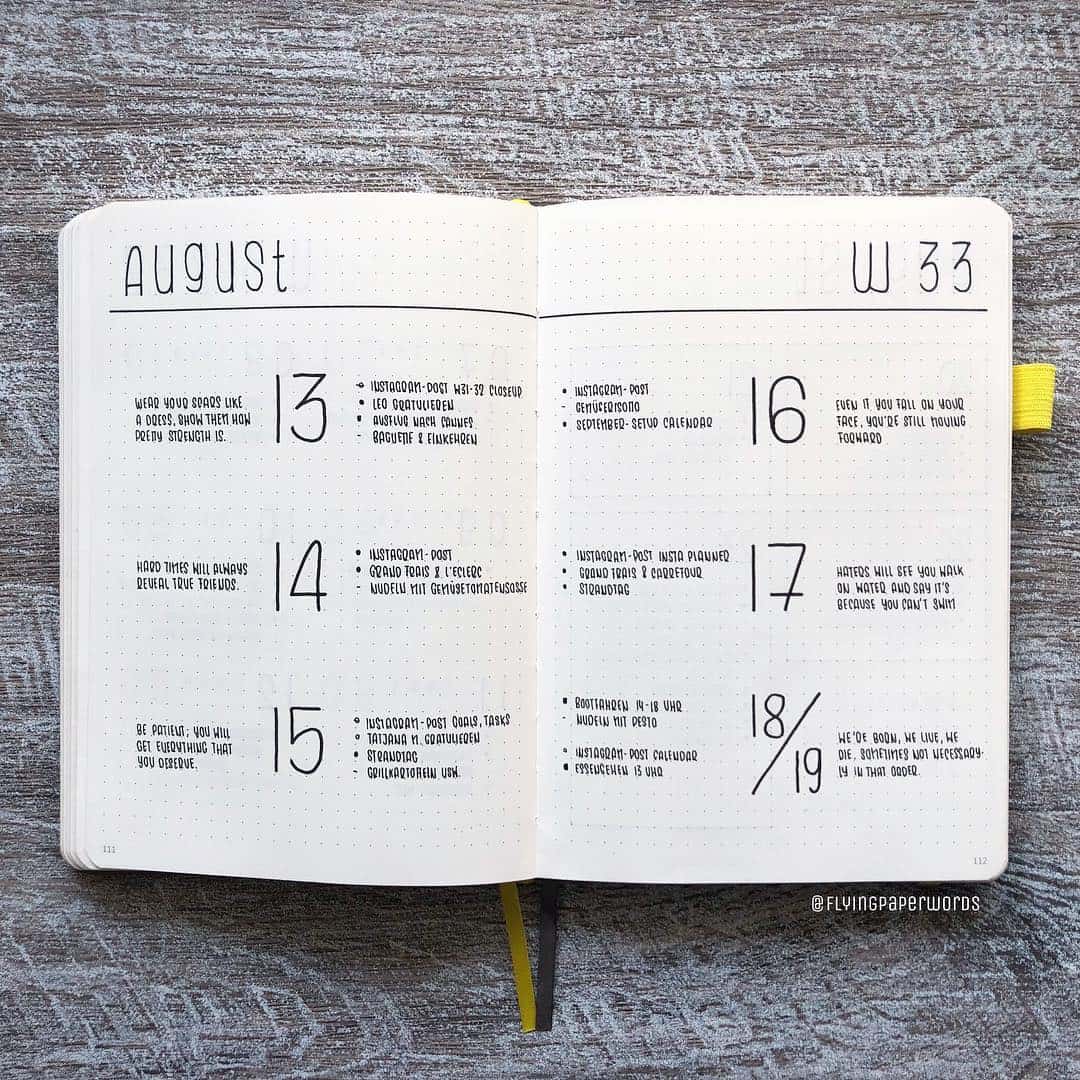 August
W 33
WEAR YOUR SCARS LIKE
A DRESS, SHOW THEM HOW
PRETTY STRENGTH IS.
13
INSTAGRAM-POST W31-32 CLOSEUP
LEO GRATULIEREN
AUSFLUG NACH CANNES
- BAGUETTE & EINKEHREN
HARD TIMES WILL ALWAYS
REVEAL TRUE FRIENDS.
14
INSTAGRAM-POST
GRAND FRAIS & L'ECLERC
- NUDELN MIT GEMÜSETOMATENSOSSE
BE PATIENT; YOU WILL
GET EVERYTHING THAT
YOU DESERVE.
15
INSTAGRAM-POST GOALS, TASKS
TATJANA M. GRATULIEREN
STRANDTAG
- GRILLKARTOFFELN USW.
111
INSTAGRAM-POST
- GEMÜSERISOTTO
SEPTEMBER-SETUP CALENDAR
16
EVEN IF YOU FALL ON YOUR
FACE, YOU'RE STILL MOVING
FORWARD
INSTAGRAM-POST INSTA PLANNER
GRAND FRAIS & CARREFOUR
STRANDTAG
17
HATERS WILL SEE YOU WALK
ON WATER AND SAY IT'S
BECAUSE YOU CAN'T SWIM
BOOTFAHREN 14-18 UHR
- NUDELN MIT PESTO
INSTAGRAM-POST CALENDAR
ESSENGEHEN 13 UHR
18/19
WE'RE BORN, WE LIVE, WE
DIE, SOMETIMES NOT NECESSARY-
LY IN THAT ORDER.
112
@FLYINGPAPERWORDS